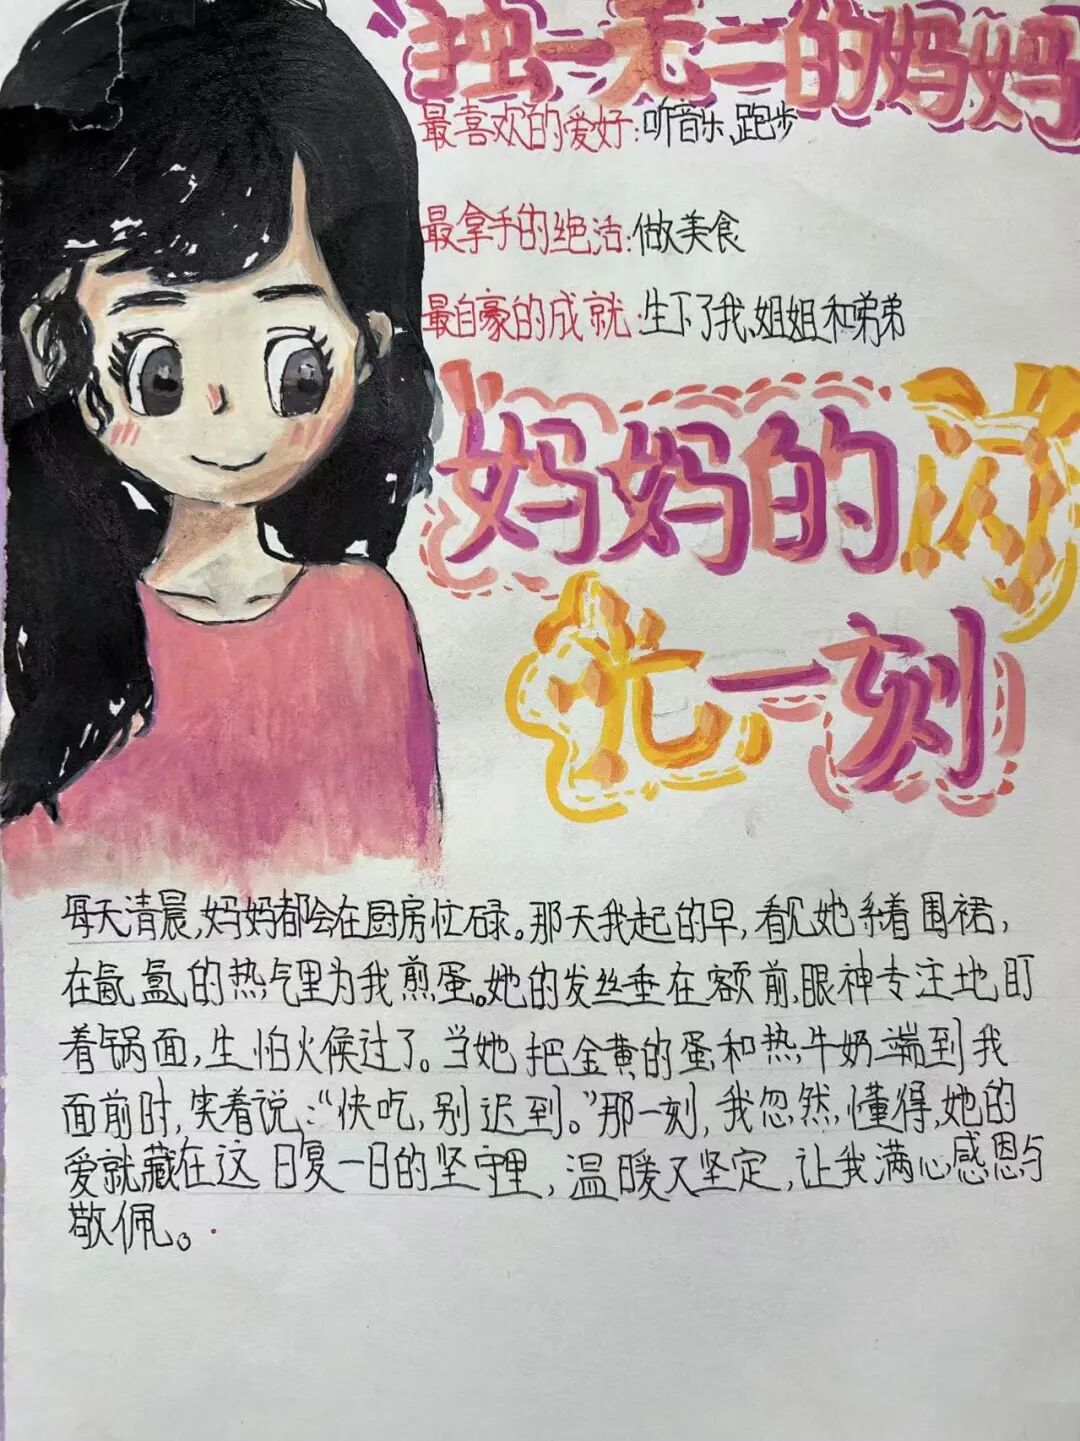 独一无二的妈妈
最喜欢的爱好:听音乐、跑步
最拿手的绝活:做美食
最自豪的成就:生下了我、姐姐和弟弟
妈妈的闪
光一刻
每天清晨,妈妈都会在厨房忙碌。那天我起的早,看见她系着围裙,
在氤氲的热气里为我煎蛋。她的发丝垂在额前,眼神专注地盯
着锅面,生怕火候过了。当她把金黄的蛋和热牛奶端到我
面前时,笑着说:“快吃,别迟到。”那一刻,我忽然懂得,她的
爱就藏在这日复一日的坚守里,温暖又坚定,让我满心感恩与
敬佩。